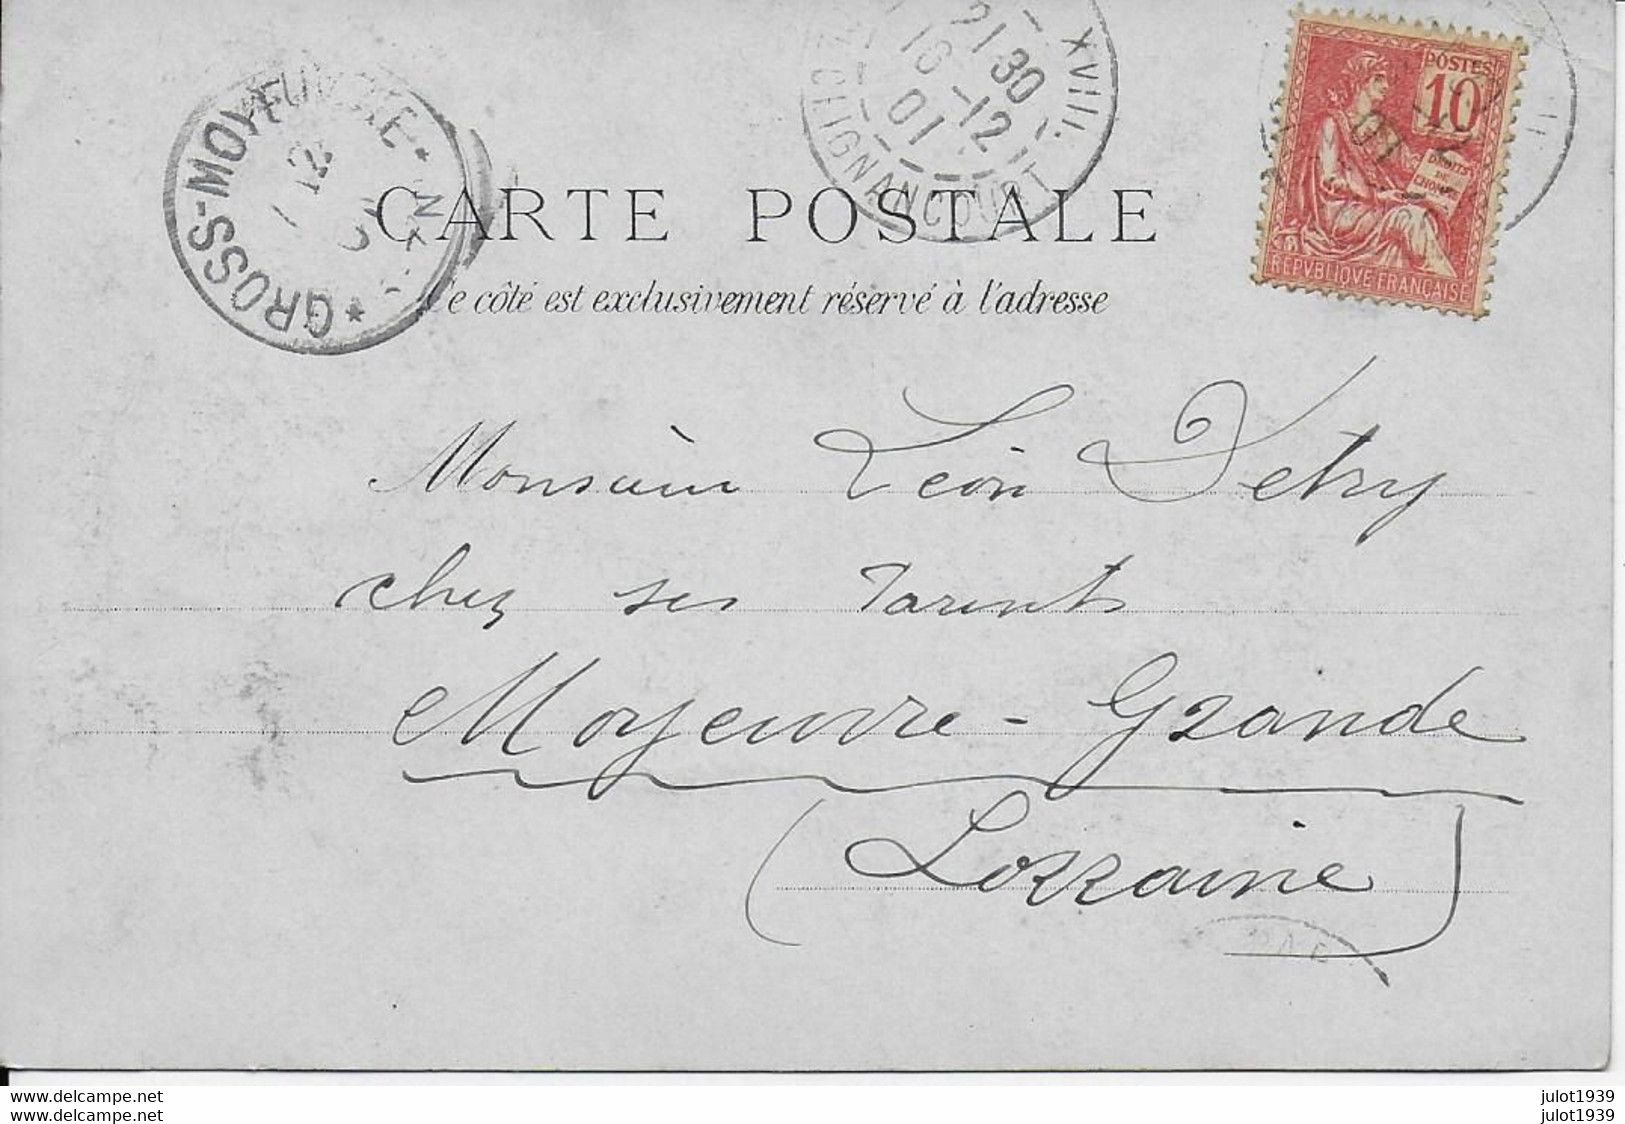 GROSS-MOYEUVRE
12
XVIII.
21 30
16 -12
01
CLIGNANCOURT
POSTES
10
DROITS
DE
L'HOMME
REPVBLIQVE FRANÇAISE
12
01
CARTE POSTALE
Ce côté est exclusivement réservé à l'adresse
Monsieur Léon Detry
chez ses Parents
Moyeuvre-Grande
(Lorraine)
delcampe.net
delcampe.net
julot1939
julot1939